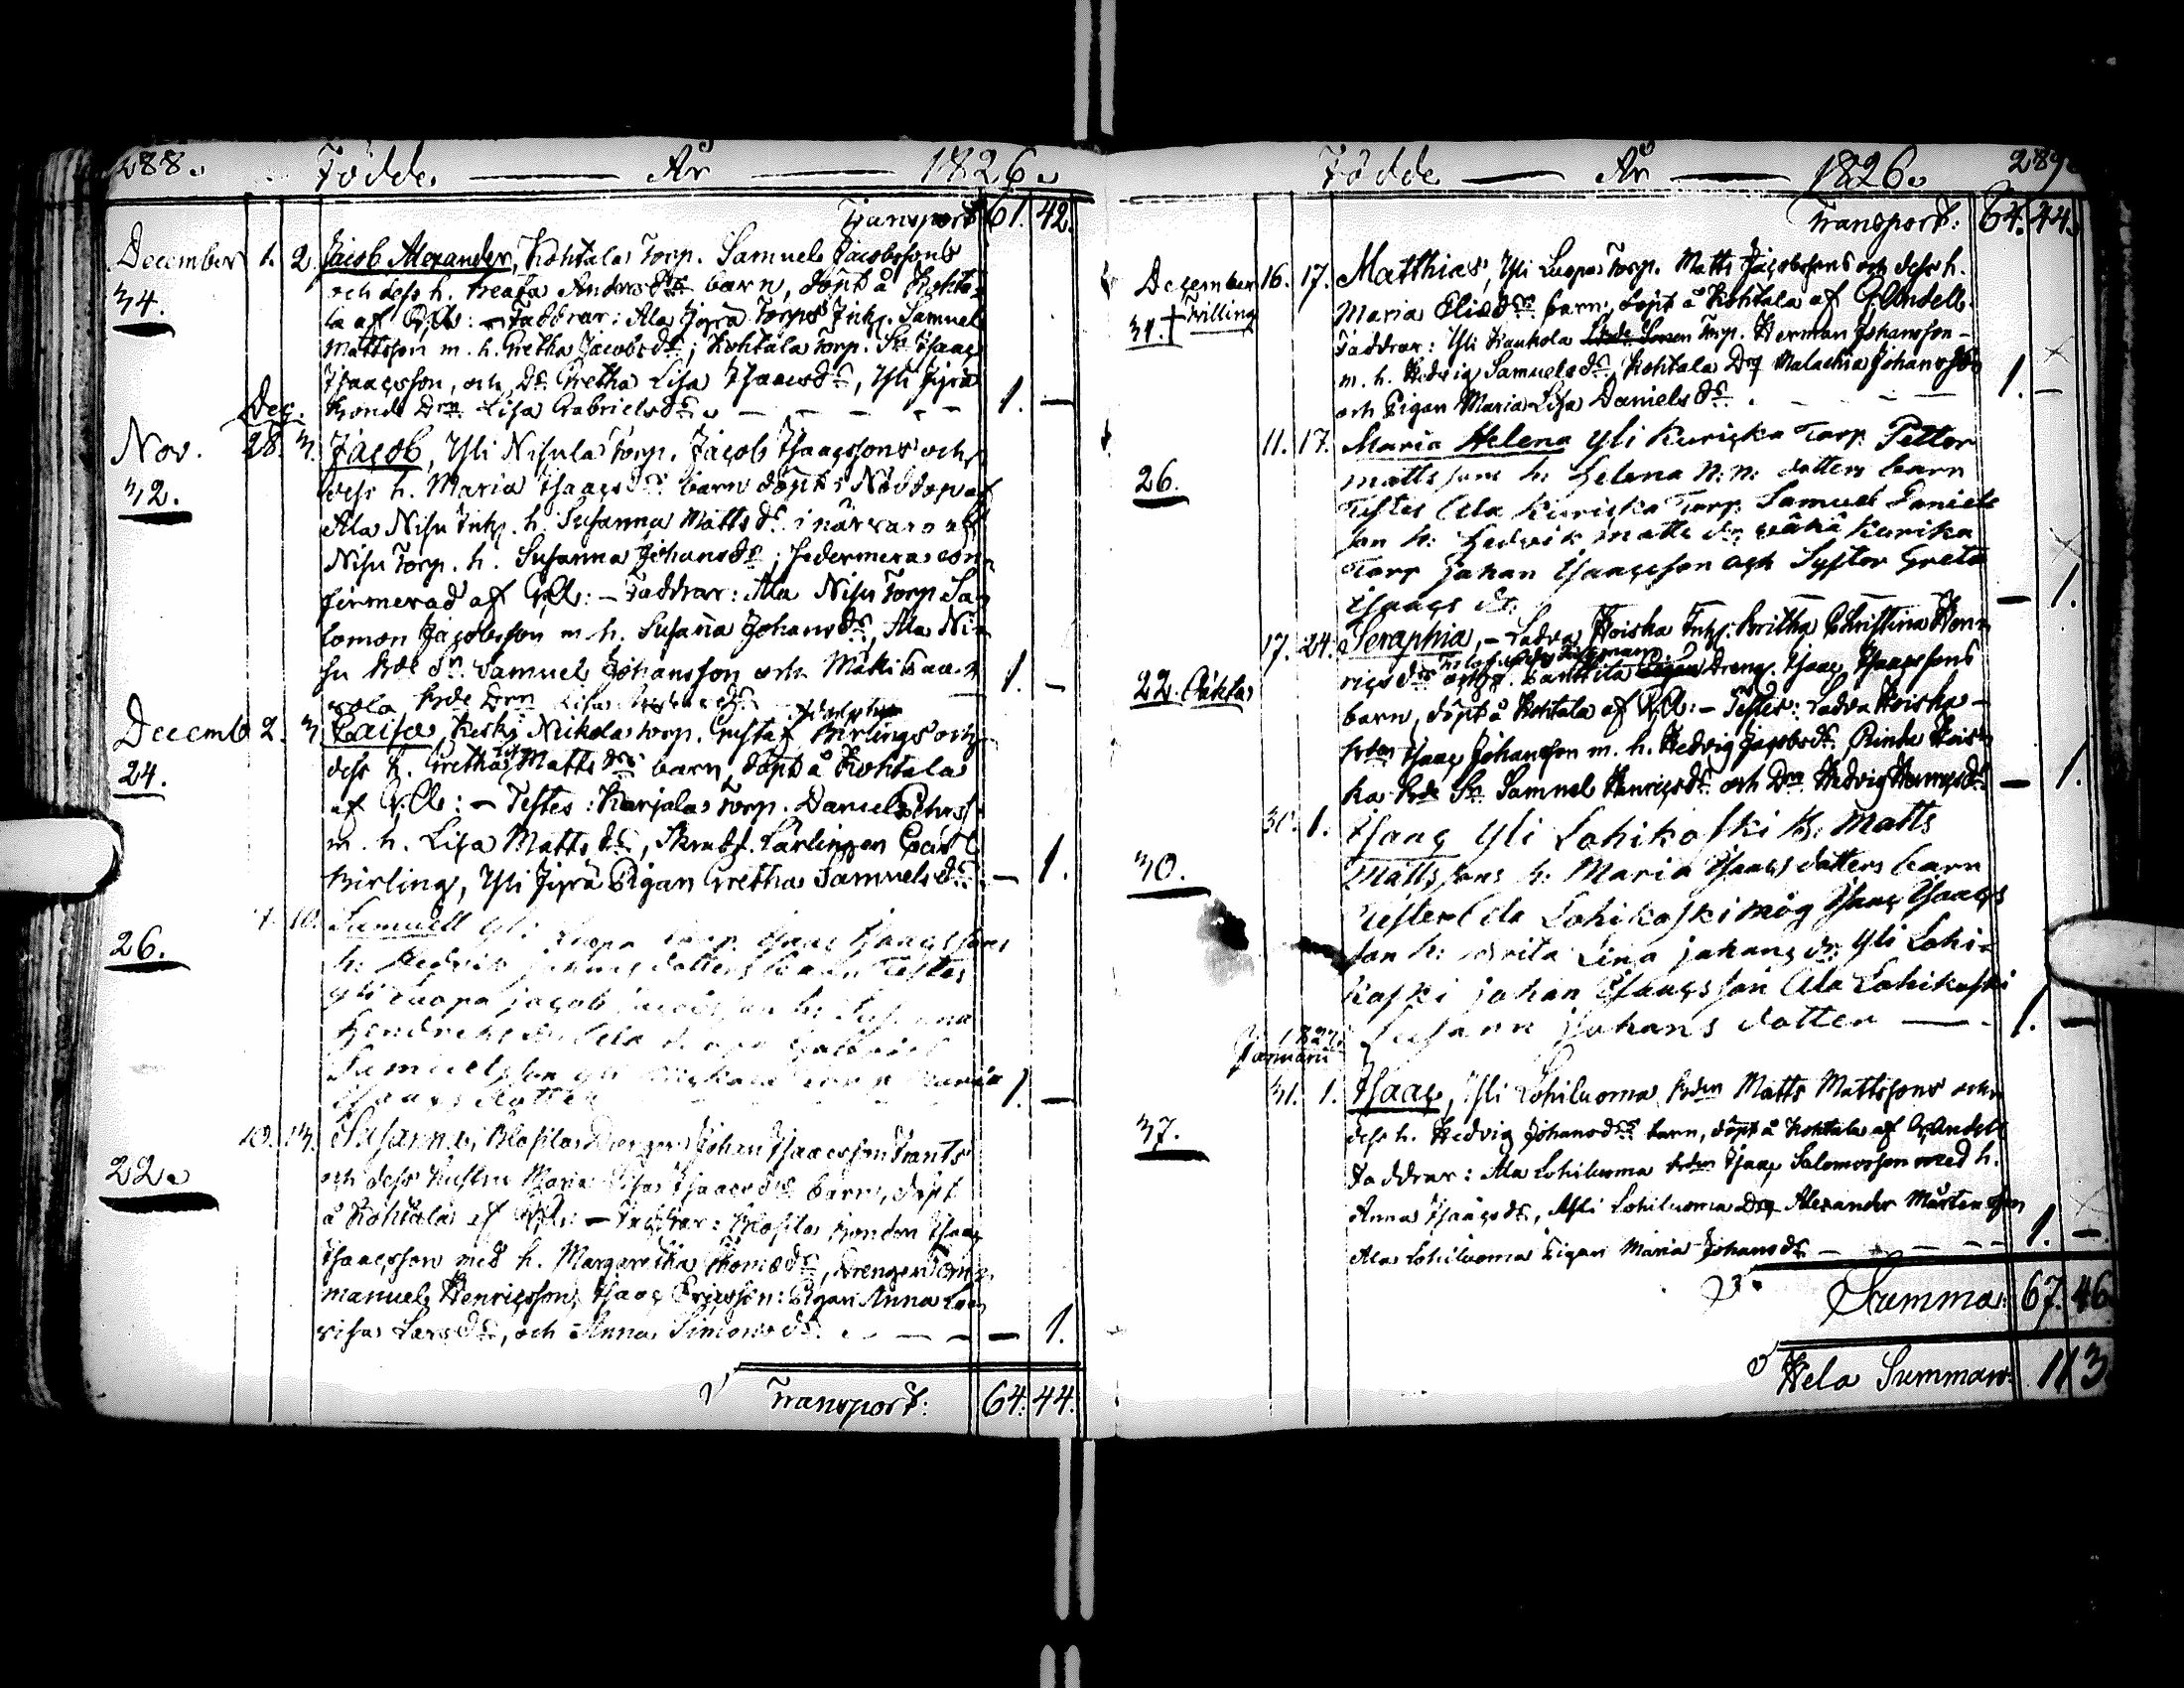 288. Födde — År — 1826.
Transport 61. 42.
December 1. 2. Jacob Alexander, Kohtala Torp. Samuel Jacobssons
34. och dess h. Beata Anders dr barn, döpt å Kohta-
la af : — Faddrar: Ala Jyrä Torps Inhs. Samuel
Mattsson m. h. Gretha Jacobs dr; Kohtala Torp. Sn Isaac
Isaacsson, och Dr Gretha Lisa Isaacs dr, Yli Jyrä
Bonde Drn Lisa Gabriels dr. — 1. —
Dec.
Nov. 28. 3. Jacob, Yli Nisula Torp. Jacob Isaacssons och
32. dess h. Maria Isaacs dr barn döpt i Nöddop af
Ala Nisu Inhs. h. Susanna Matts dr i närvaro af
Nisu Torp. h. Susanna Johans dr; sedermera con-
firmerad af : — Faddrar: Ala Nisu Torp Sa-
lomon Jacobsson m h. Susanna Johans dr, Ala Ni-
su Bde Sn Samuel Johansson och Mäki
Bde Drn Lisa 1. —
Decemb 2. 3. Caisa, Keski Nikola Torp. Gustaf Birlings och
24. dess h. Gretha Lis Matts drs barn, döpt å Kohtala
af : — Testes: Karjala Torp. Daniel
m. h. Lisa Matts dr, Lärlingen Carl
Birling, Yli Jyrä Pigan Gretha Samuels dr. — 1.
7. 10. Samuell Yli Luopa Torp. Isaac Isaacssons
26. h: Hedvik Johans dotters barn Testes
Yli Luopa Jacob h:
Hendrichs dr Ala
Samuelsson Yli Maria
Isaacs dotter 1. —
10. 13. Susanna, Blåfila Drengen Johan Isaacsson Frants
22. och dess hustru Maria Lisa Isaacs drs barn, döpt
å Kohtala af : — Faddrar: Blåfila Bonden Isaac
Isaacsson med h. Margaretha Thomæ dr, Drengen Em-
manuel Henricsson, Isaac Ericsson: Pigan Anna Lo-
visa Lars dr, och Anna Simons dr. — 1.
Transport: 64. 44.
Födde — År — 1826. 289.
Transport: 64. 44.
December 16. 17. Matthias, Yli Luopa Torp. Matts Jacobssons och dess h.
31. † Tvilling Maria Eliæ drs barn, döpt å Kohtala af G. Andell.
Faddrar: Yli Kauhola Torp. Herman Johansson
m. h. Hedvig Samuels dr, Kohtala Drg Malachia Johansson
och Pigan Maria Lisa Daniels dr. — 1. —
11. 17. Maria Helena Yli Kuricka Torp Petter
26. Mattssons h: Helena N: N: dotters barn
Testes Ala Kuricka Torp. Samuel Daniels
son h: Hedvik Matts dr: Vähä Kurika
Torp Johan Isaacsson och Syster Greta
Isaacs dr: — 1.
17. 24. Seraphia, — Ladva Hoiska Inhs. Britha Christina Hen-
22. Oäkta rics drs Dreng. Isaac Isaacssons
barn, döpt å Kohtala af : — Testes: Ladva Hoiska
Bden Isaac Johansson m. h. Hedvig Jacobs dr. Rinta Hois-
ka Bde Sn Samuel Henrics och Drn Hedvig Henrics dr — 1.
30. 1. Isaac Yli Lohikoski B: Matts
30. Mattssons h: Maria Isaacs dotters barn
Tester Ala Lohikoski måg Isaac Isaacs
son h: Brita Lina Johans dr: Yli Lohi-
koski Johan Isaacsson Ala Lohikoski
Susann Johans dotter — 1. —
1827.
Januarii
31. 1. Isaac, Yli Lohiluoma Bden Matts Mattssons och
37. dess h. Hedvig Johans drs barn, döpt å Kohtala af G. Andell
Faddrar: Ala Lohiluoma Bden Isaac Salomonsson med h.
Anna Isaacs dr, Yli Lohiluoma Drg Alexander Mårtensson
Ala Lohiluoma Pigan Maria Johans dr — 1. —
Summa: 67. 46
Hela Summan: 113